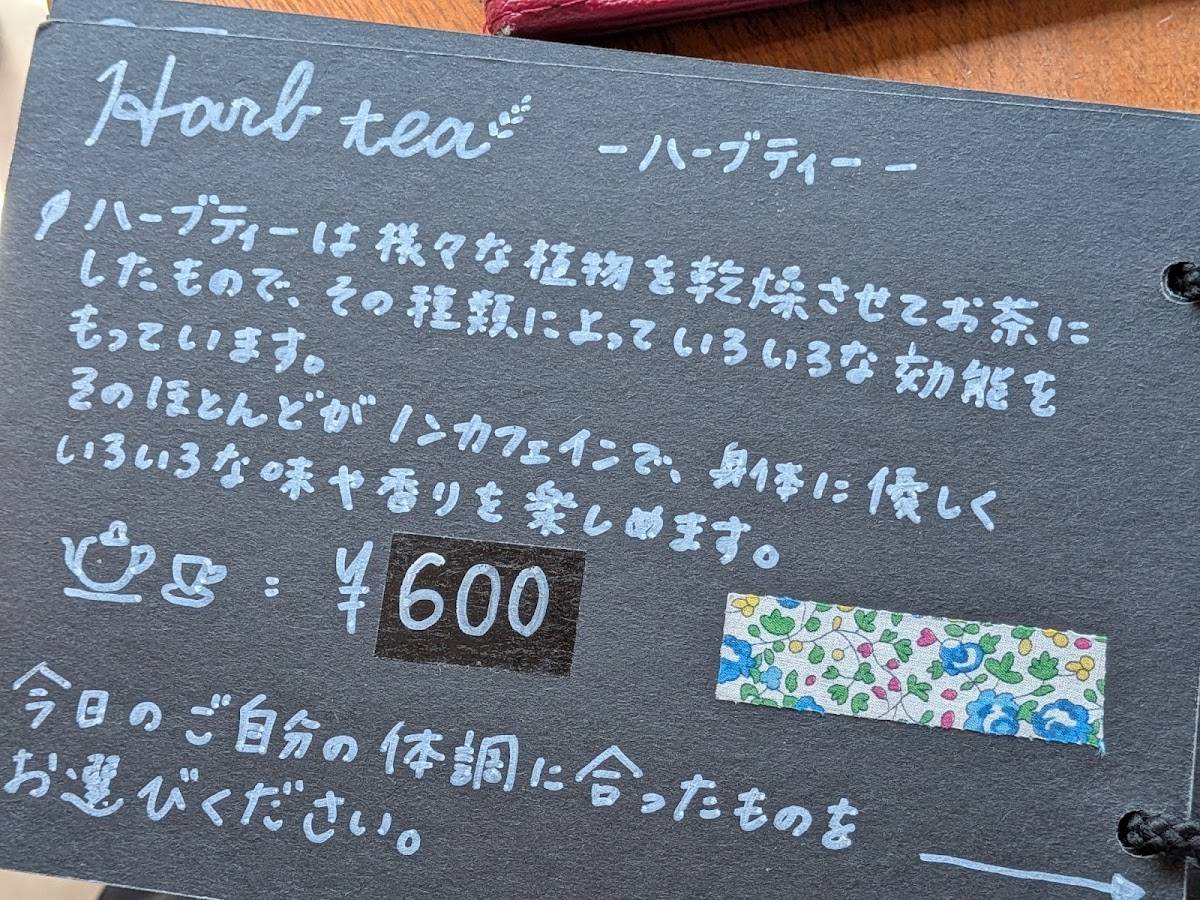 Harb tea
-ハーブティー-
ハーブティーは様々な植物を乾燥させてお茶に
したもので、その種類によっていろいろな効能を
もっています。
そのほとんどがノンカフェインで、身体に優しく
いろいろな味や香りを楽しめます。
: ¥600
今日のご自分の体調に合ったものを
お選びください。